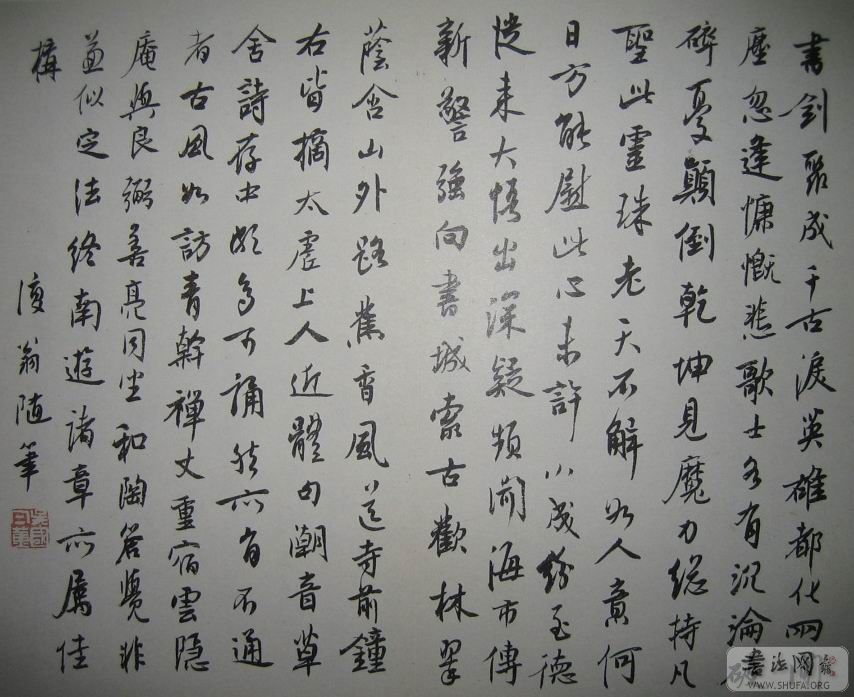 書劍成千古淚英雄都化
塵忽逢慷慨悲歌士多有沉淪
憂顛倒乾坤見魔力總持凡
聖此靈珠老天不解如人意何
日方能慰此心未許小成至德
從來大悟出深疑頻開海市傳
新警強向書城索古歡林翠
蔭含山外路蕉香風送寺前鐘
右皆摘太虛上人近體句潮音草
舍詩存中頗多可誦然亦有不通
者古風如訪青幹禪丈重宿雲隱
庵與良弼善亮同坐和陶答覺非
並似定法終南遊諸章亦屬佳
構
復翁隨筆
書法网
WWW.SHUFA.ORG